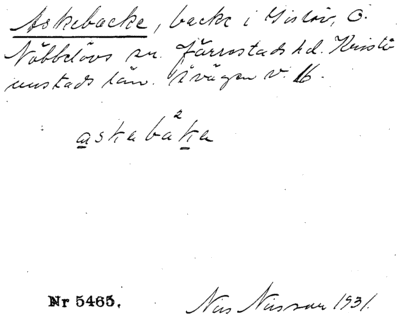 Askebacke, backe i Gislöv, Ö.
Nöbbelövs sn. Järrestads hd. Kristi-
anstads län. Åvägen v. 16.
askaba²ka
Nr 5465.
Nils Nilsson 1931.